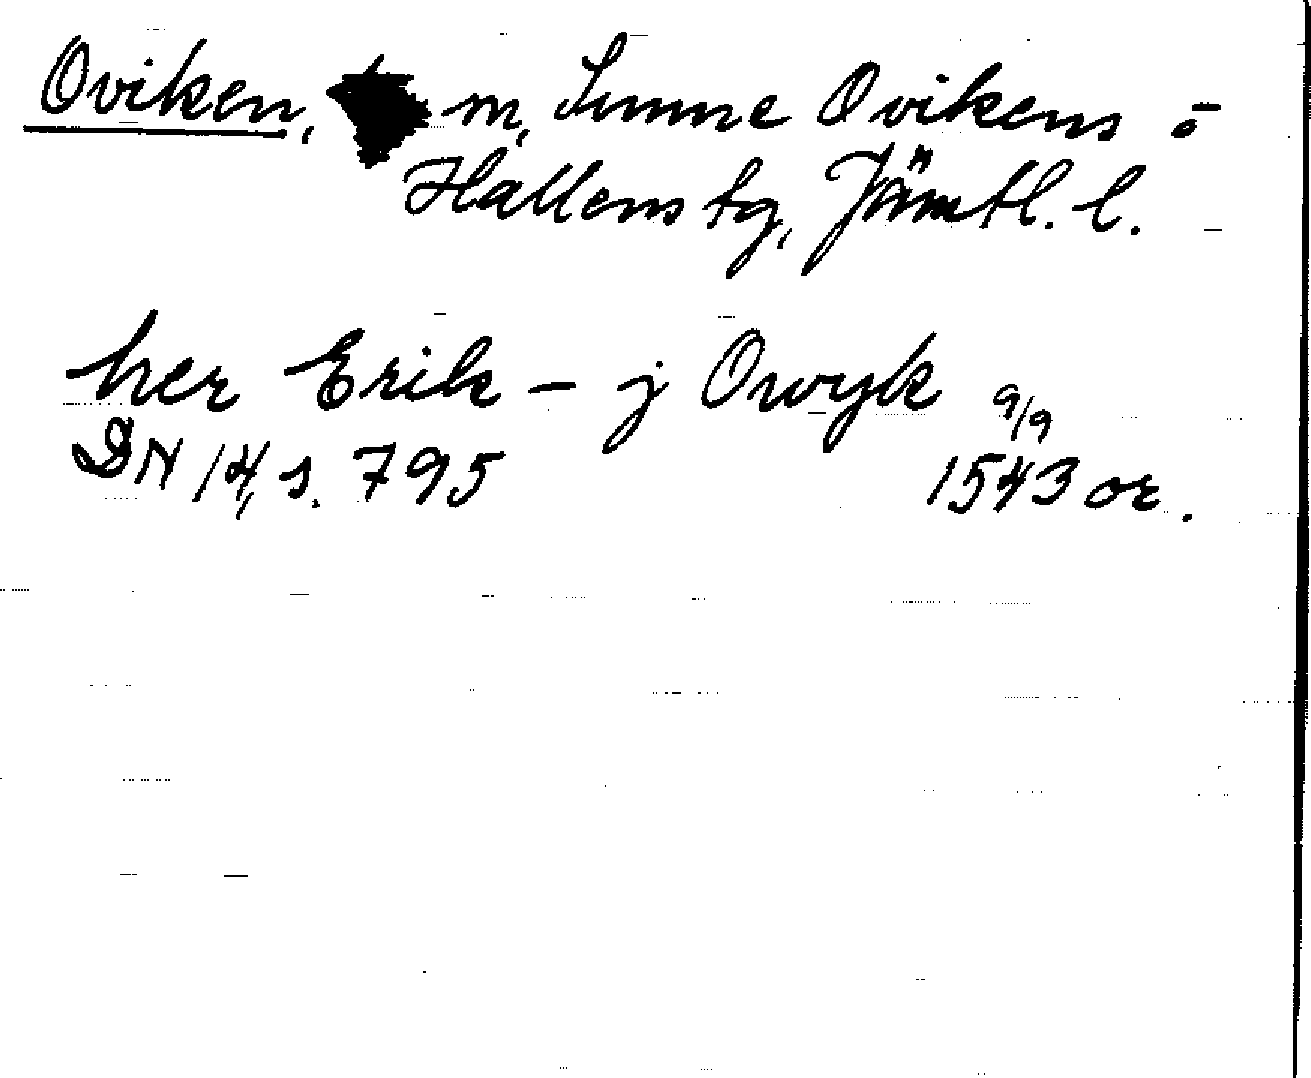 Oviken, m, Sunne Ovikens o
Hallens tg, Jämtl. l.
her Erik – j Owyk 9/9
DN 14, s. 795 1543 or.